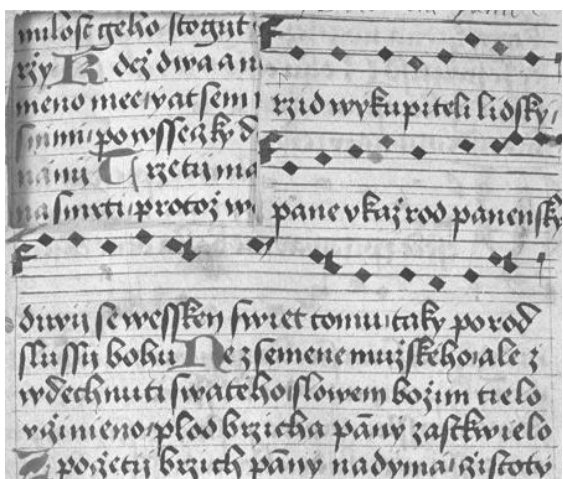 miloſt geho ſtogut
rży Kdeż dwa a n
meno mee
ſnimi powſſeczky d
nami Trzetij ma
na ſmrti protoż w
rzid wykupiteli lidſky
pane vkaż rod panenſky
diwij ſe weſſken ſwiet tomu taky porod
ſluſſij bohu Ne z ſemene mużſkeho ale z
wdechnuti ſwateho ſlowem bożim tielo
vċinieno plod brzicha pāny zaſtkwielo
brzich pāny nadyma ċiſtoty